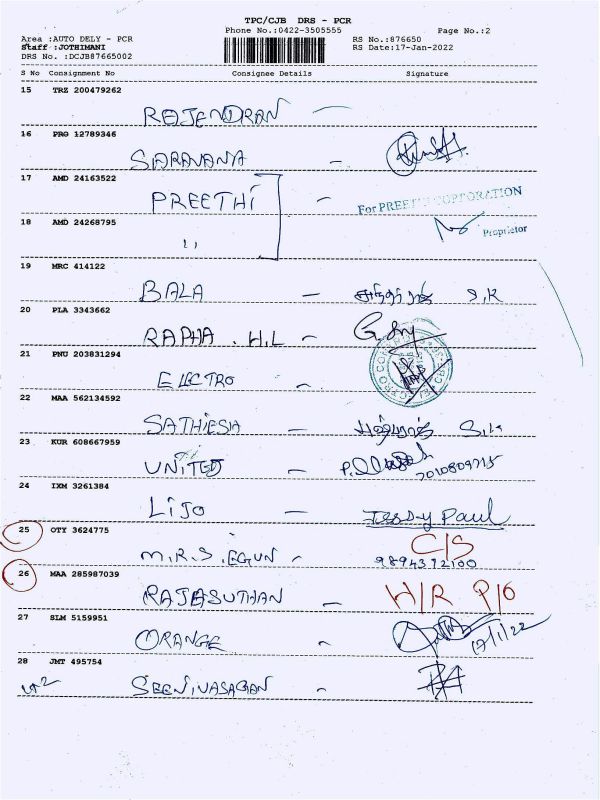 TPC/CJB DRS - PCR
Phone No.:0422-3505555
Page No.:2
Area :AUTO DELY - PCR
Staff :JOTHIMANI
DRS No. :DCJB87665002
RS No.:876650
RS Date:17-Jan-2022
S No Consignment No Consignee Details Signature
15 TRZ 200479262
RAJENDRAN
16 PRG 12789346
SARAVANA
17 AMD 24163522
PREETHI
For PREETHI CORPORATION
18 AMD 24268795
Proprietor
19 MRC 414122
BALA S.K
20 PLA 3343662
RAPHA . H.L
21 PNU 203831294
ELECTRO
22 MAA 562134592
SATHIESIA S.K
23 KUR 608667959
UNITED
7010809715
24 IXM 3261384
LIJO Jessy Paul
25 OTY 3624775
C/S
M.R.S. EGUN 9894392100
26 MAA 285987039
RAJASUTHAN H/R P/O
27 SLM 5159951
ORANGE 17/1/22
28 JMT 495754
SEENIVASAGAN